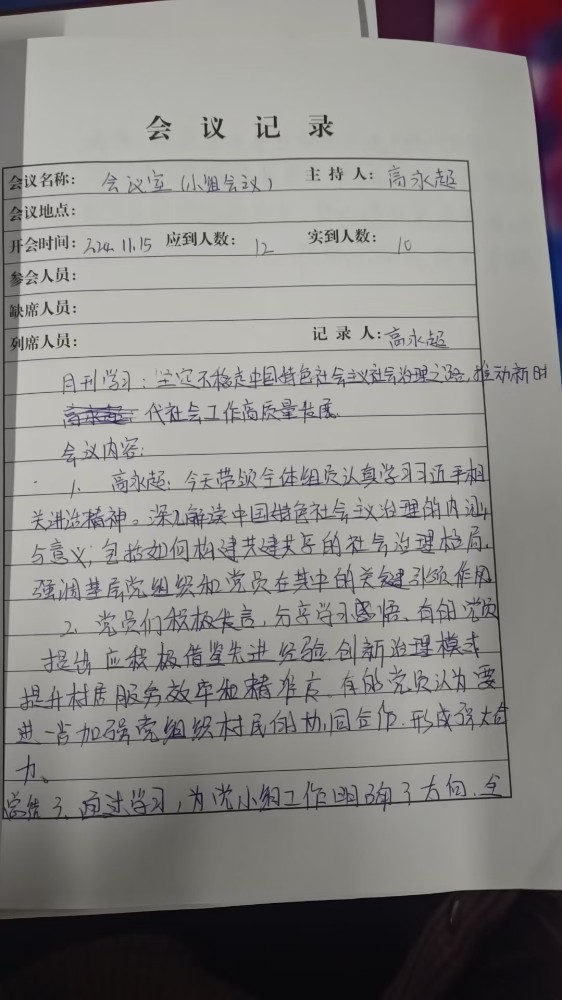 会议记录
会议名称： 会议室（小组会议） 主持人：高永超
会议地点：
开会时间：2024.11.15 应到人数： 12 实到人数： 10
参会人员：
缺席人员：
列席人员： 记录人：高永超
月刊学习：坚定不移走中国特色社会主义社会治理之路，推动新时
代社会工作高质量发展.
会议内容：
1. 高永超：今天带领全体组员认真学习习近平相
关讲话精神。深入解读中国特色社会主义治理的内涵
与意义，包括如何构建共建共享的社会治理格局.
强调基层党组织和党员在其中的关键引领作用
2. 党员们积极发言，分享学习感悟、有的党员
提出应积极借鉴先进经验.创新治理模式
提升村居服务效率和精准度.有的党员认为要
进一步加强党组织村民的协同合作.形成强大合
力。
总结 3、通过学习，为党小组工作明确了方向，全